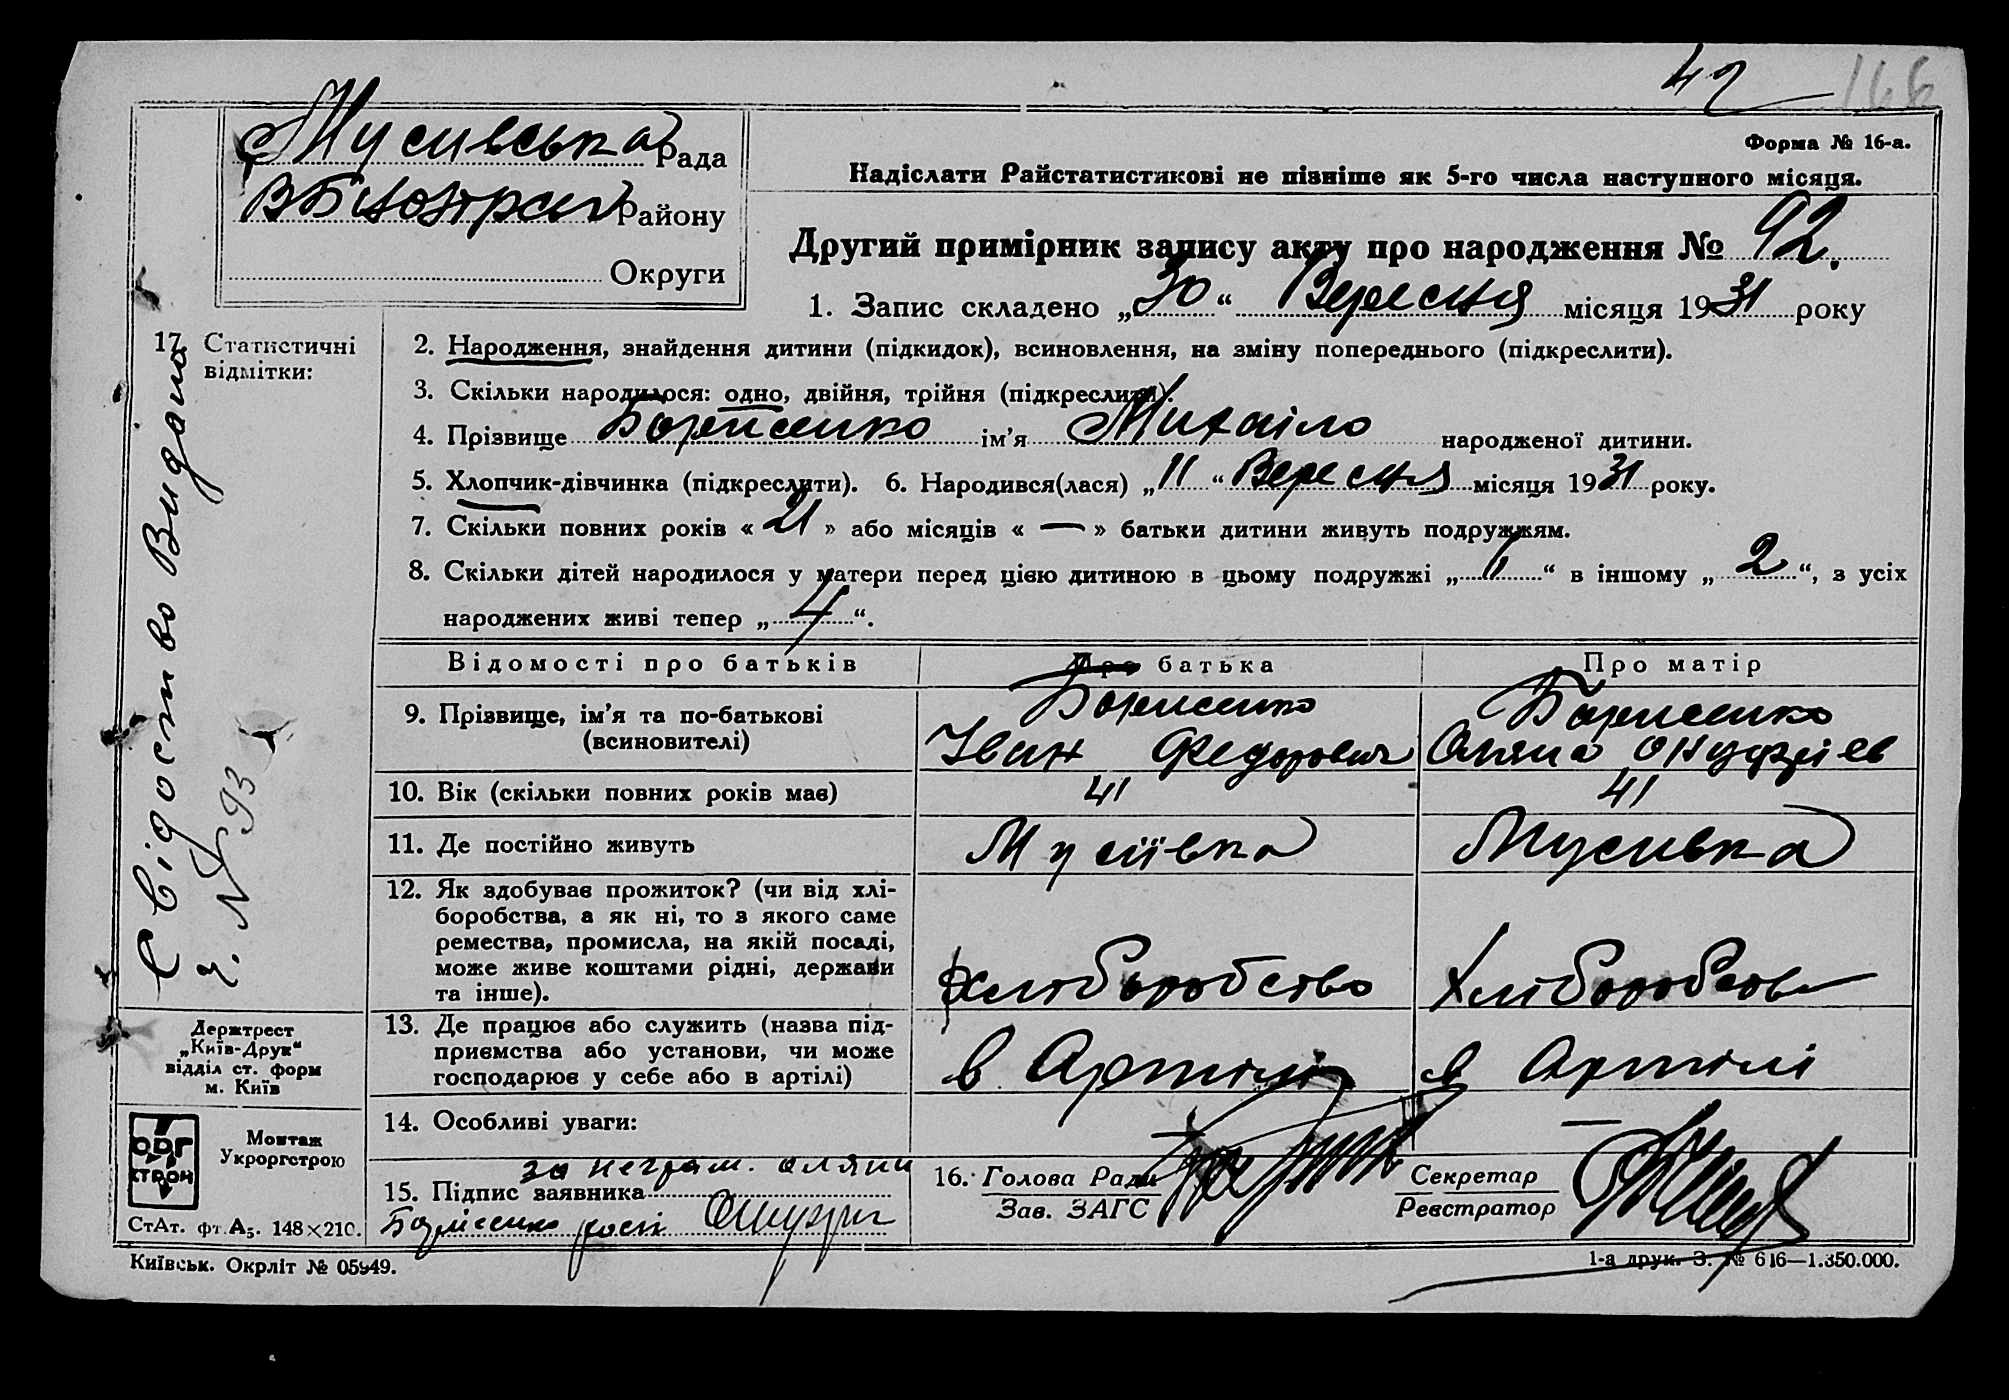 42 166
Мусивська Рада
Району
Округи
Форма № 16-а.
Надіслати Райстатистикові не пізніше як 5-го числа наступного місяця.
Другий примірник запису акту про народження № 92.
1. Запис складено „30“ Вересня місяця 1931 року
17. Статистичні відмітки:
Свідоство Видано
ч. № 93
2. Народження, знайдення дитини (підкидок), всиновлення, на зміну попереднього (підкреслити).
3. Скільки народилося: одно, двійня, трійня (підкреслити).
4. Прізвище Борисенко ім’я Михаіло народженої дитини.
5. Хлопчик-дівчинка (підкреслити). 6. Народився(лася) „11“ Вересня місяця 1931 року.
7. Скільки повних років «21» або місяців «—» батьки дитини живуть подружжям.
8. Скільки дітей народилося у матери перед цією дитиною в цьому подружжі „“ в іншому „2“, з усіх
народжених живі тепер „4“.
Відомості про батьків Про батька Про матір
9. Прізвище, ім’я та по-батькові
(всиновителі)
Борисенко
Іван Федорович
Борисенко
Оляна Онуфріев
10. Вік (скільки повних років має) 41 41
11. Де постійно живуть Мусіївка Мусивка
12. Як здобуває прожиток? (чи від хлі-
боробства, а як ні, то з якого саме
ремества, промисла, на якій посаді,
може живе коштами рідні, держави
та інше).
хліборобство Хліборобство
13. Де працює або служить (назва під-
приємства або установи, чи може
господарює у себе або в артілі)
в Артілі в Артілі
14. Особливі уваги: — —
15. Підпис заявника за неграм. оляни
Борисенко
16. Голова Ради
Зав. ЗАГС
Секретар
Реєстратор
Держтрест
„Київ-Друк“
відділ ст. форм
м. Київ
ОРГ
СТРОЙ
Монтаж
Укроргстрою
СтАт. фт. А₅. 148×210.
Київськ. Окрліт № 05949.
1-а друк. З. № 616—1.350.000.